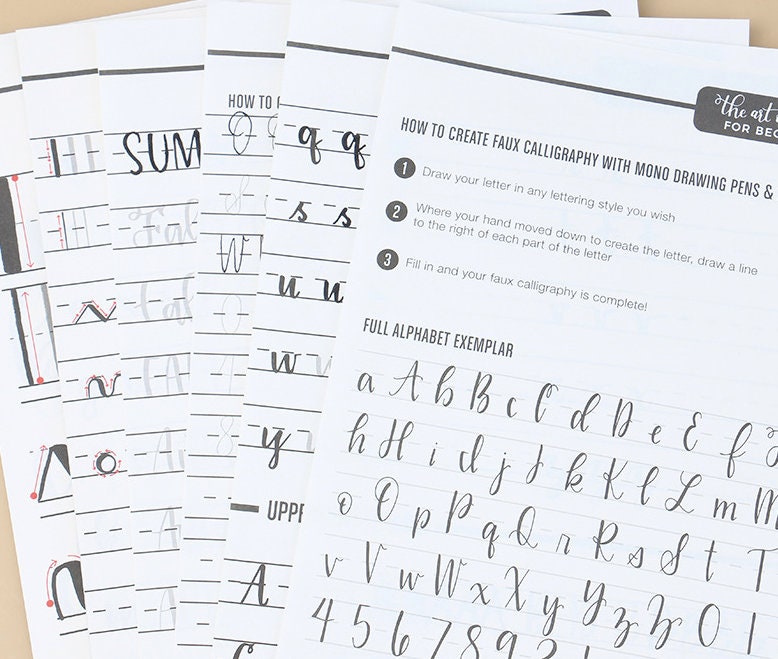 SUM
HOW TO
q q
s s
u u
w
y
UPP
A
the art
FOR BEG
HOW TO CREATE FAUX CALLIGRAPHY WITH MONO DRAWING PENS &
1 Draw your letter in any lettering style you wish
2 Where your hand moved down to create the letter, draw a line
to the right of each part of the letter
3 Fill in and your faux calligraphy is complete!
FULL ALPHABET EXEMPLAR
a A b B c C d D e E f
h H i d j J k K l L m M
o O p P q Q r R s S t T
v V w W x X y Y z Z 0 1
4 5 6 7 8 9